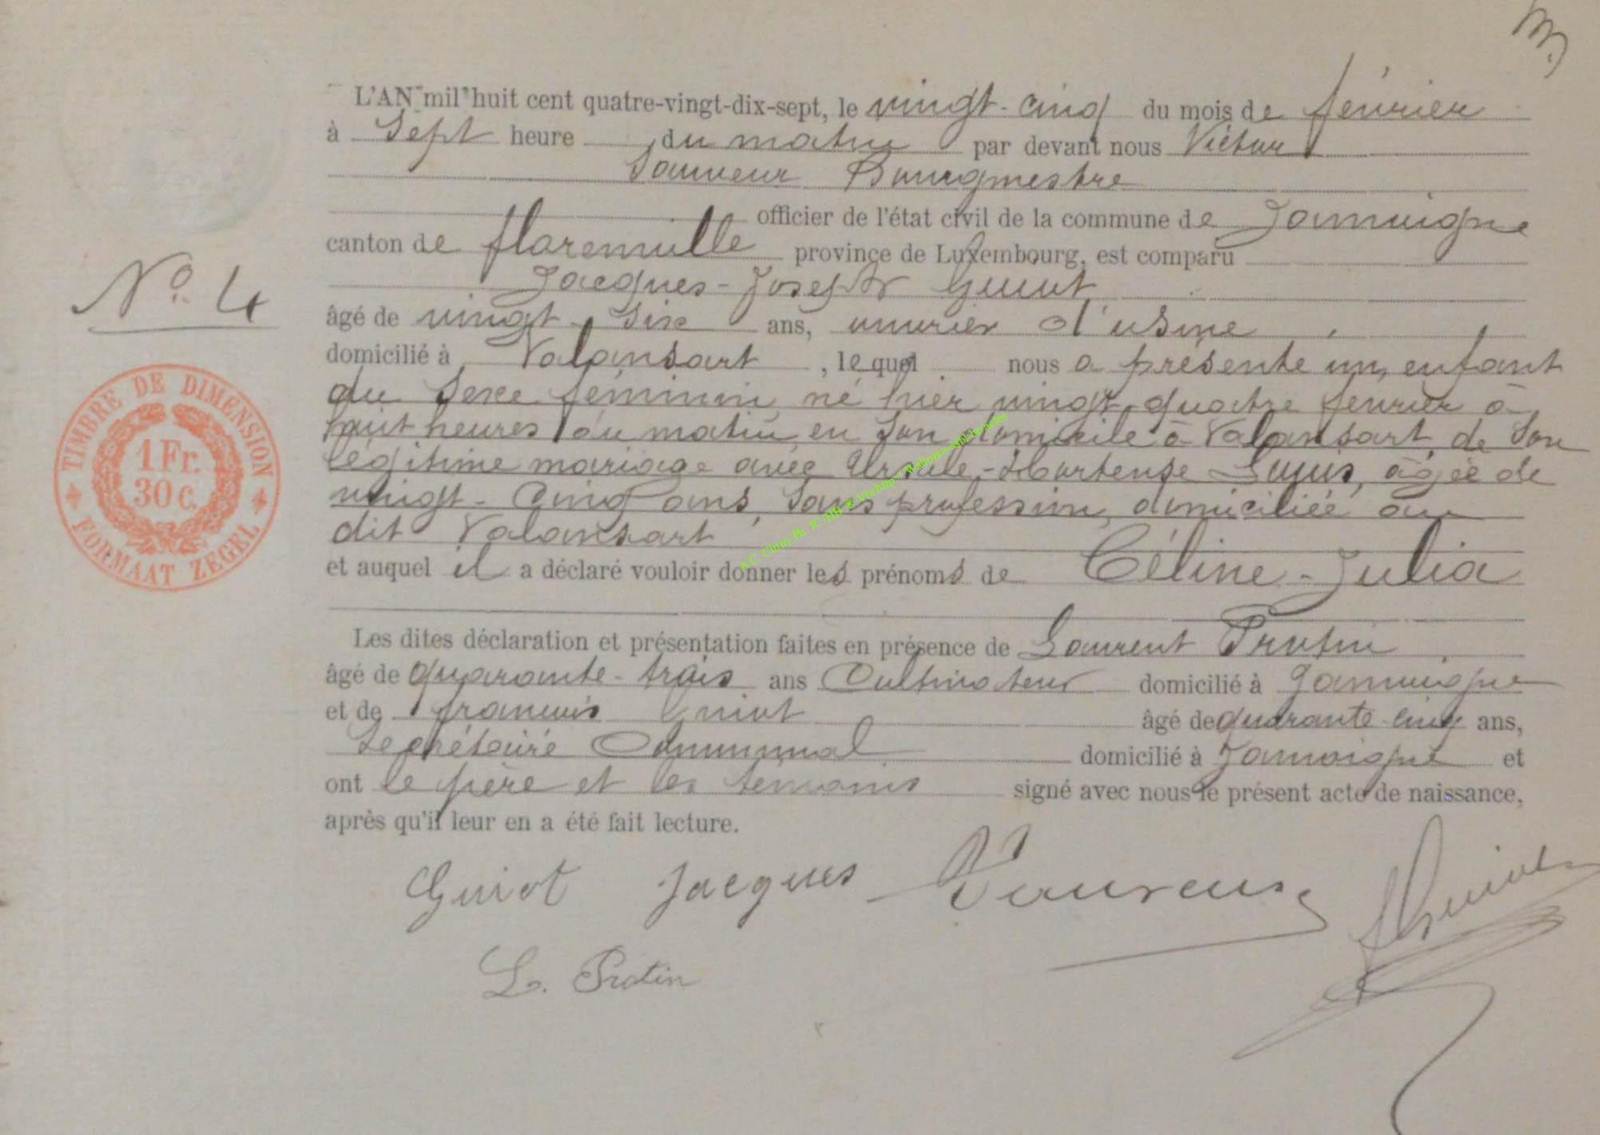 L'AN mil huit cent quatre-vingt-dix-sept, le vingt-cinq du mois de février
à Sept heure du matin par devant nous Victor
Sauveur Bourgmestre
officier de l'état civil de la commune de Jamoigne
canton de florenville province de Luxembourg, est comparu
Jacques-Joseph Guiot
N° 4
âgé de vingt six ans, ouvrier d'usine,
domicilié à Valansart, lequel nous a présenté un enfant
du sexe féminin, né hier vingt-quatre février à
huit heures du matin en son domicile à Valansart, de son
légitime mariage avec Ursule-Hortense, âgée de
vingt-cinq ans, sans profession, domiciliée au
dit Valansart
et auquel il a déclaré vouloir donner les prénoms de Céline-Julia
TIMBRE DE DIMENSION
1 Fr.
30 c.
FORMAAT ZEGEL
Les dites déclaration et présentation faites en présence de Laurent Protin
âgé de quarante-trois ans Cultivateur domicilié à Jamoigne
et de françois Guiot âgé de quarante-cinq ans,
Secrétaire Communal domicilié à Jamoigne et
ont le père et les témoins signé avec nous le présent acte de naissance,
après qu'il leur en a été fait lecture.
Guiot Jacques VSauveur FGuiot
L. Protin